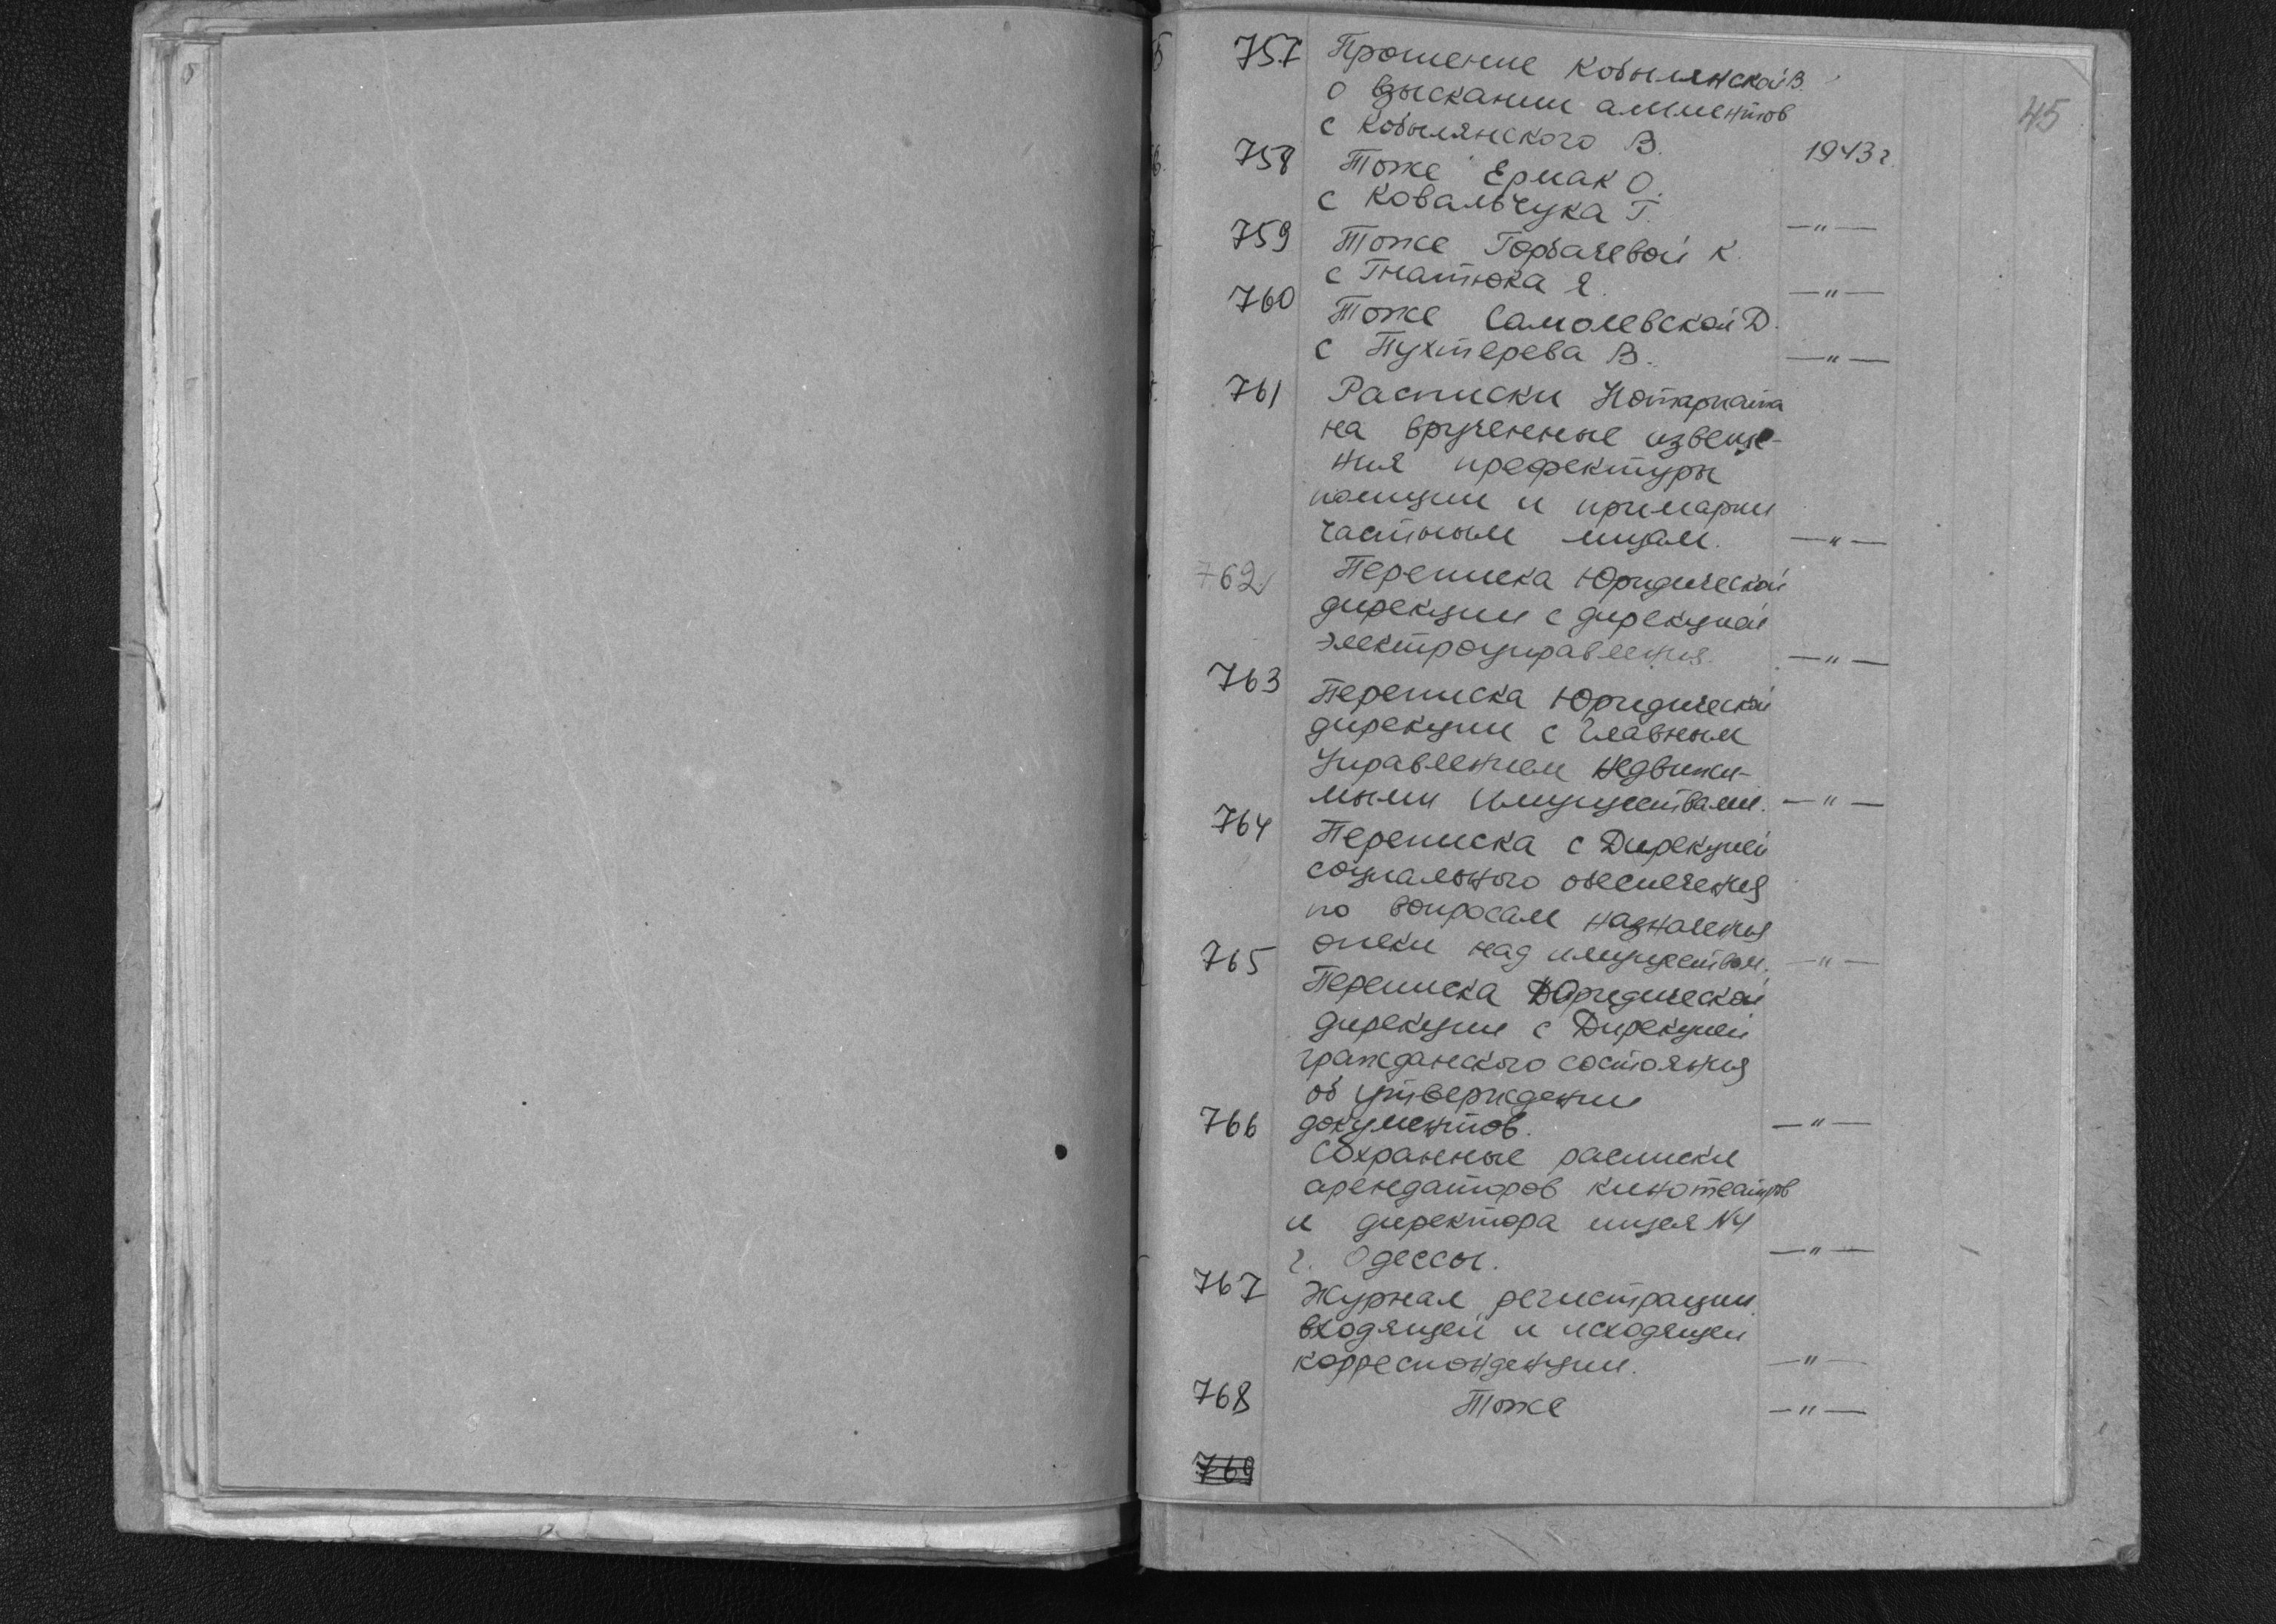 45
757 Прошение Кобылянской В.
о взыскании алиментов
с Кобылянского В. 1943 г.
758 Тоже Ермак О.
с Ковальчука Г. —"—
759 Тоже Горбачевой К.
с Гнатюка Я. —"—
760 Тоже Самолевской Д.
с Пухтерева В. —"—
761 Расписки Нотариата
на врученные извеще-
ния префектуры
полиции и примарии
частным лицам. —"—
762 Переписка Юридической
дирекции с дирекцией
электроуправления. —"—
763 Переписка Юридической
дирекции с Главным
Управлением Недвижи-
мыми Имуществами. —"—
764 Переписка с Дирекцией
социального обеспечения
по вопросам назначения
опеки над имуществом. —"—
765 Переписка Юридической
дирекции с Дирекцией
гражданского состояния
об утверждении
документов. —"—
766 Сохранные расписки
арендаторов кинотеатров
и директора лицея №4
г. Одессы. —"—
767 Журнал регистрации
входящей и исходящей
корреспонденции. —"—
768 Тоже —"—
769